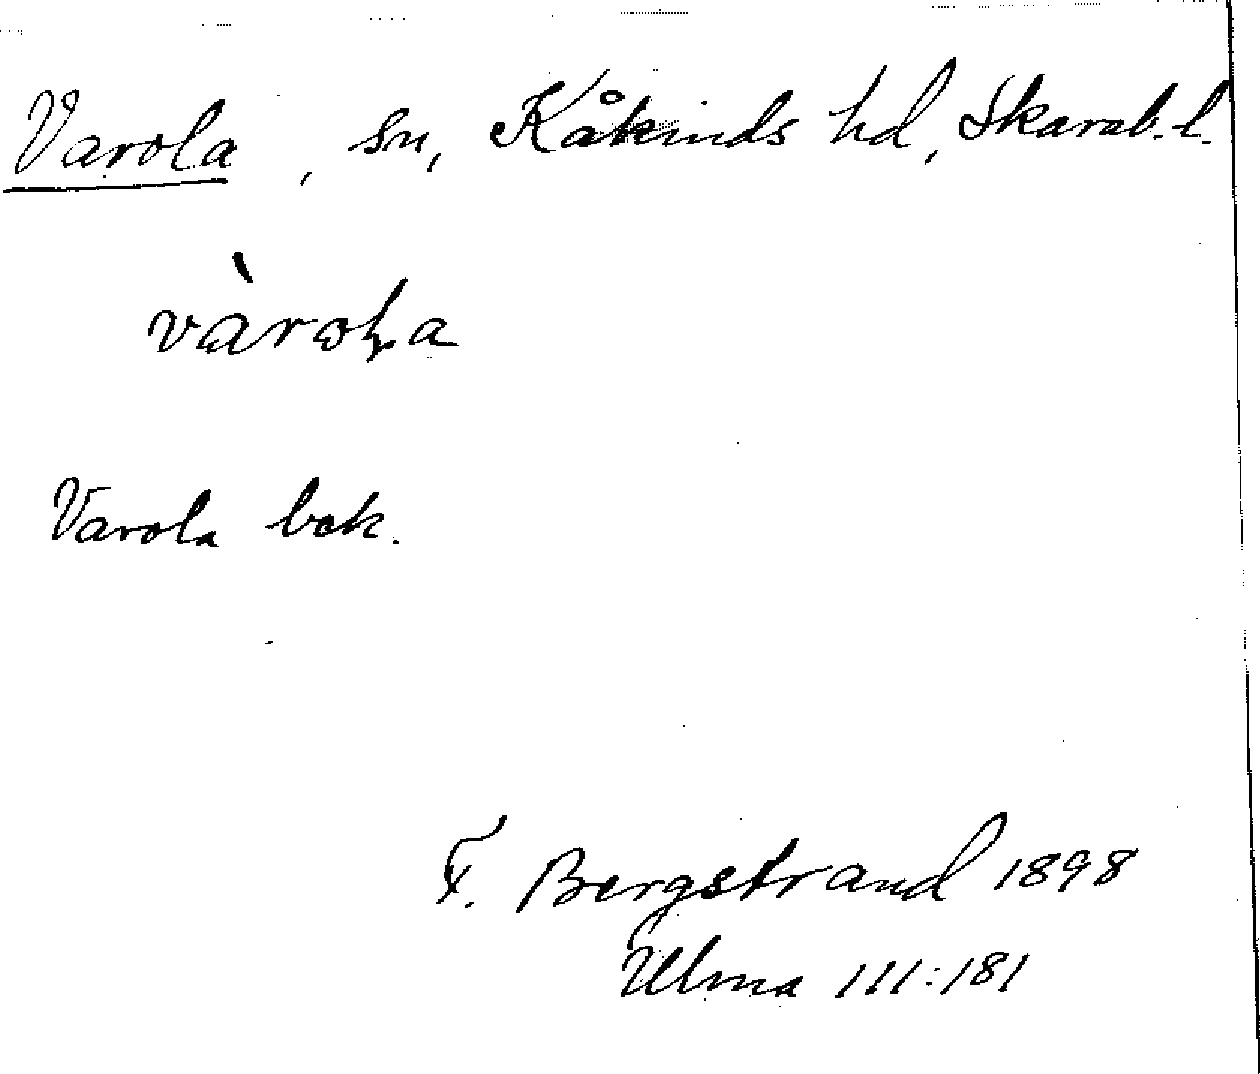 Varola, sn, Kåkinds hd, Skarab. l.
vàroḷa
Varola bok.
F. Bergstrand 1898
Ulma 111:181